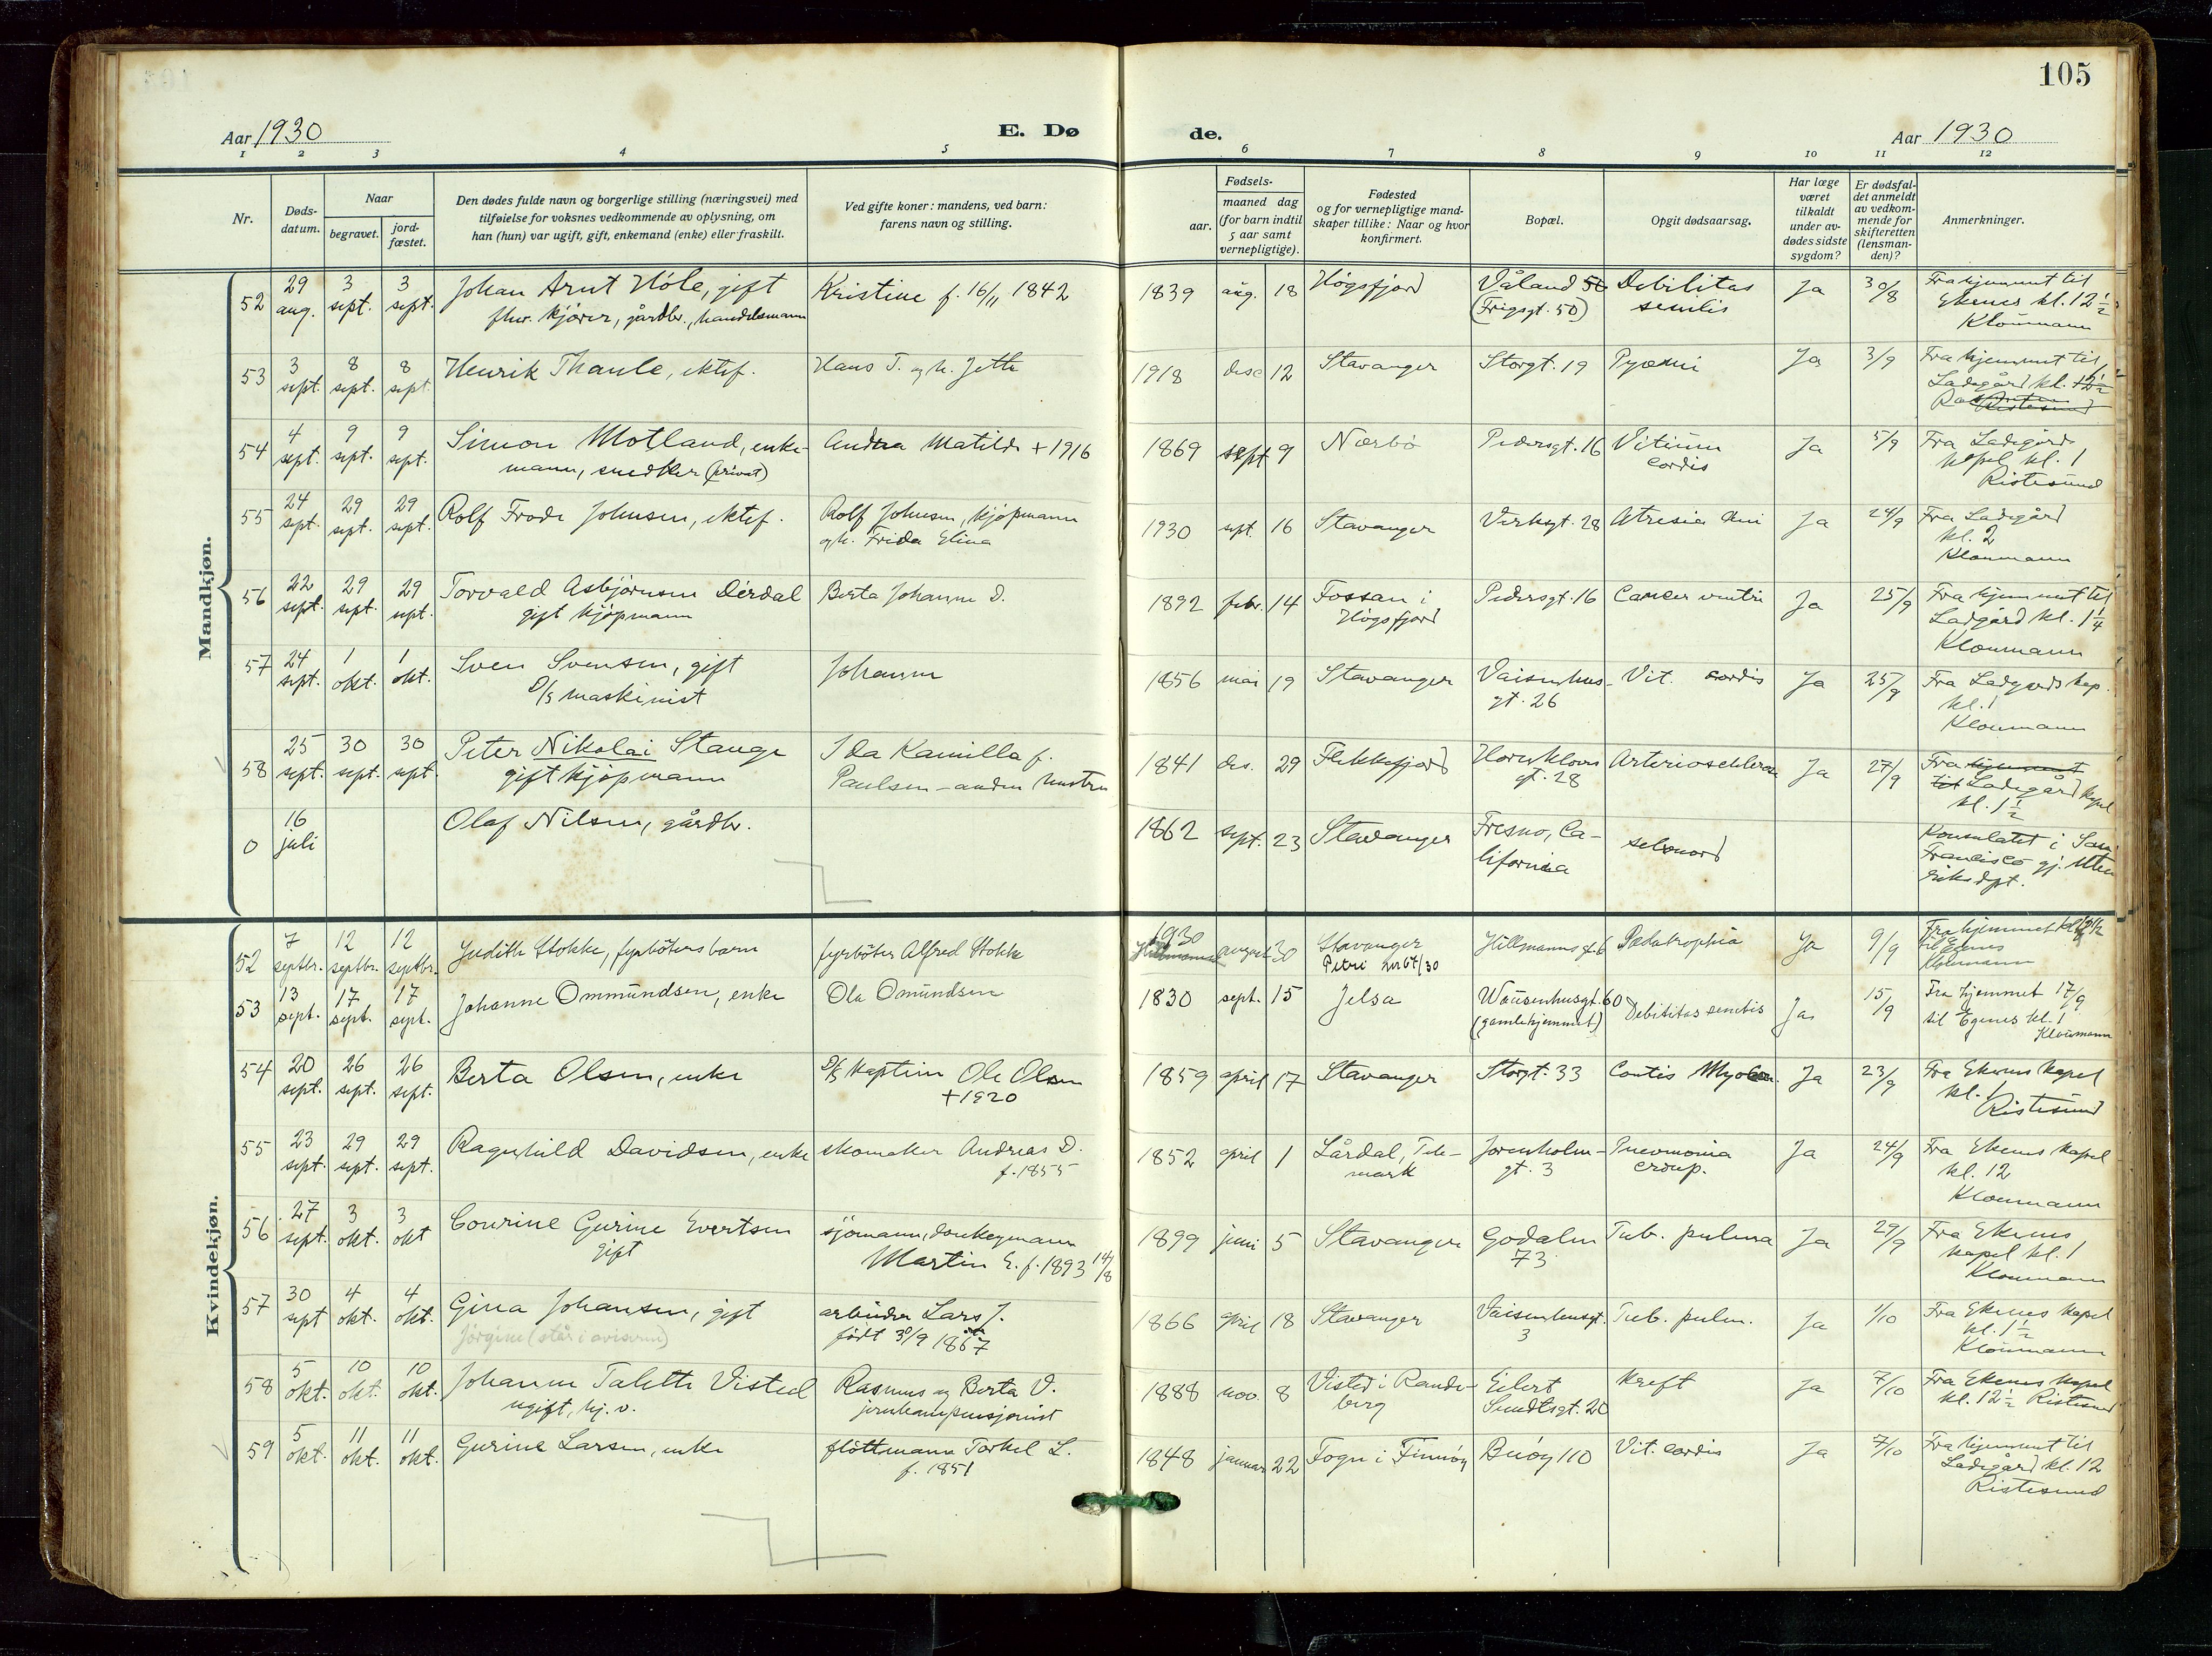 105
Aar 1930
E. Dø
de.
Aar 1930
1 2 3 4 5 6 7 8 9 10 11 12
Nr.
Døds-
datum.
Naar
begravet.
jord-
fæstet.
Den dødes fulde navn og borgerlige stilling (næringsvei) med
tilføielse for voksnes vedkommende av oplysning, om
han (hun) var ugift, gift, enkemand (enke) eller fraskilt.
Ved gifte koner: mandens, ved barn:
farens navn og stilling.
Fødsels-
aar.
maaned dag
(for barn indtil
5 aar samt
vernepligtige).
Fødested
og for vernepligtige mand-
skaper tillike: Naar og hvor
konfirmert.
Bopæl.
Opgit dødsaarsag.
Har læge
været
tilkaldt
under av-
dødes sidste
sygdom?
Er dødsfal-
det anmeldt
av vedkom-
mende for
skifteretten
(lensman-
den)?
Anmerkninger.
Mandkjøn.
52 29 aug. 3 sept. 3 sept. Johan Arnt Höle, gift
fhv. kjörer, gårdbr., handelsmann
Kristine f. 16/11 1842
1839 aug. 18 Högsfjord Våland
(Frigsgt. 50)
Debilitas
senilis
Ja 30/8 Fra hjemmet til
Ekenes kl. 12 1/2
Kloumann
53 3 sept. 8 sept. 8 sept. Henrik Thaule, ektef.
Hans T. og h. Jette
1918 des 12 Stavanger Storgt. 19 Pyæmi Ja 3/9 Fra hjemmet til
Ladegård kl.
54 4 sept. 9 sept. 9 sept. Simon Motland, enke-
mann, snedker (privat)
Andrea Matilde + 1916
1869 sept 9 Nærbö Pedersgt. 16 Vitium
cordis
Ja 5/9 Fra Ladegård
kapel kl. 1
Ristesund
55 24 sept. 29 sept. 29 sept. Rolf Frode Johnsen, ektef.
Rolf Johnsen, kjöpmann
og h. Frida Elina
1930 sept. 16 Stavanger Verksgt. 28 Atresia Ani Ja 24/9 Fra Ladegård
kl. 2
Kloumann
56 22 sept. 29 sept. 29 sept. Torvald Asbjörnsen Dirdal
gift kjöpmann
Berta Johanne D.
1892 febr. 14 Fossan i
Högsfjord
Pedersgt. 16 Cancer ventri Ja 25/9 Fra hjemmet til
Ladgård kl. 1 1/4
Kloumann
57 24 sept. 1 okt. 1 okt. Sven Svensen, gift
D/S maskinist
Johanne
1856 mai 19 Stavanger Vaisenhus-
gt. 26
Vit. cordis Ja 25/9 Fra Ladgårds kap.
kl. 1
Kloumann
58 25 sept. 30 sept. 30 sept. Peter Nikolai Stange
gift kjöpmann
Ida Kamilla f.
Paulsen - anden hustru
1841 des. 29 Flekkefjord Hornklovs
gt. 28
Arteriosclerose Ja 27/9 Fra hjemmet
til Ladegård kapel
kl. 1 1/2
0 16 juli Olaf Nilsen, gårdbr.
1862 sept. 23 Stavanger Fresno, Ca-
lifornia
selvmord
Konsulatet i San
Francisco gj. Uten-
riksdpt.
Kvindekjøn.
52 7 septbr. 12 septbr. 12 septbr. Judith Stokke, fyrböters barn
fyrböter Alfred Stokke
1930 august 30 Stavanger
Petri nr 67/30
Hillmanns gt. 6 Pædatrophia Ja 9/9 Fra hjemmet
til Egenes
Kloumann
53 13 sept. 17 sept. 17 sept. Johanne Ommundsen, enke
Ola Omundsen
1830 sept. 15 Jelsa Waisenhusgt. 60
(gamlehjemmet)
Debilitas senilis Ja 15/9 Fra hjemmet 17/9
til Egenes kl. 1
Kloumann
54 20 sept. 26 sept. 26 sept. Berta Olsen, enke
D/S kaptein Ole Olsen
+ 1920
1859 april 17 Stavanger Storgt. 33 Ja 23/9 Fra Ekenes kapel
kl. 1
Ristesund
55 23 sept. 29 sept. 29 sept. Ragnhild Davidsen, enke
skomaker Andreas D.
f. 1855
1852 april 1 Lårdal, Tele-
mark
Jorenholm-
gt. 3
Pneumonia
croup.
Ja 24/9 Fra Ekenes kapel
kl. 12
Kloumann
56 27 sept. 3 okt. 3 okt Gourine Gurine Evertsen
gift
sjömann, donkeymann
Martin E. f. 1893 14/8
1899 juni 5 Stavanger Godalen
73
Tub. pulma Ja 29/9 Fra Ekenes
kapel kl. 1
Kloumann
57 30 sept 4 okt. 4 okt. Gina Johansen, gift
Jörgine (står i avisene)
arbeider Lars J.
född 30/9 1867
1866 april 18 Stavanger Vaisenhusgt.
3
Tub. pulm. Ja 1/10 Fra Ekenes kapel
kl. 1 1/2
Kloumann
58 5 okt. 10 okt. 10 okt. Johanne Talette Visted
ugift, hj. v.
Rasmus og Berta V.
jernbanepensjonist
1888 nov. 8 Visted i Rande-
berg
Eilert
Sundtsgt. 20
Kreft Ja 7/10 Fra Ekenes kapel
kl. 12 1/2 Ristesund
59 5 okt. 11 okt. 11 okt. Gurine Larsen, enke
flöttmann Torkel L.
f. 1851
1848 januar 22 Fogn i Finnöy Buöy 110 Vit. cordis Ja 7/10 Fra hjemmet til
Ladegård kl. 12
Ristesund